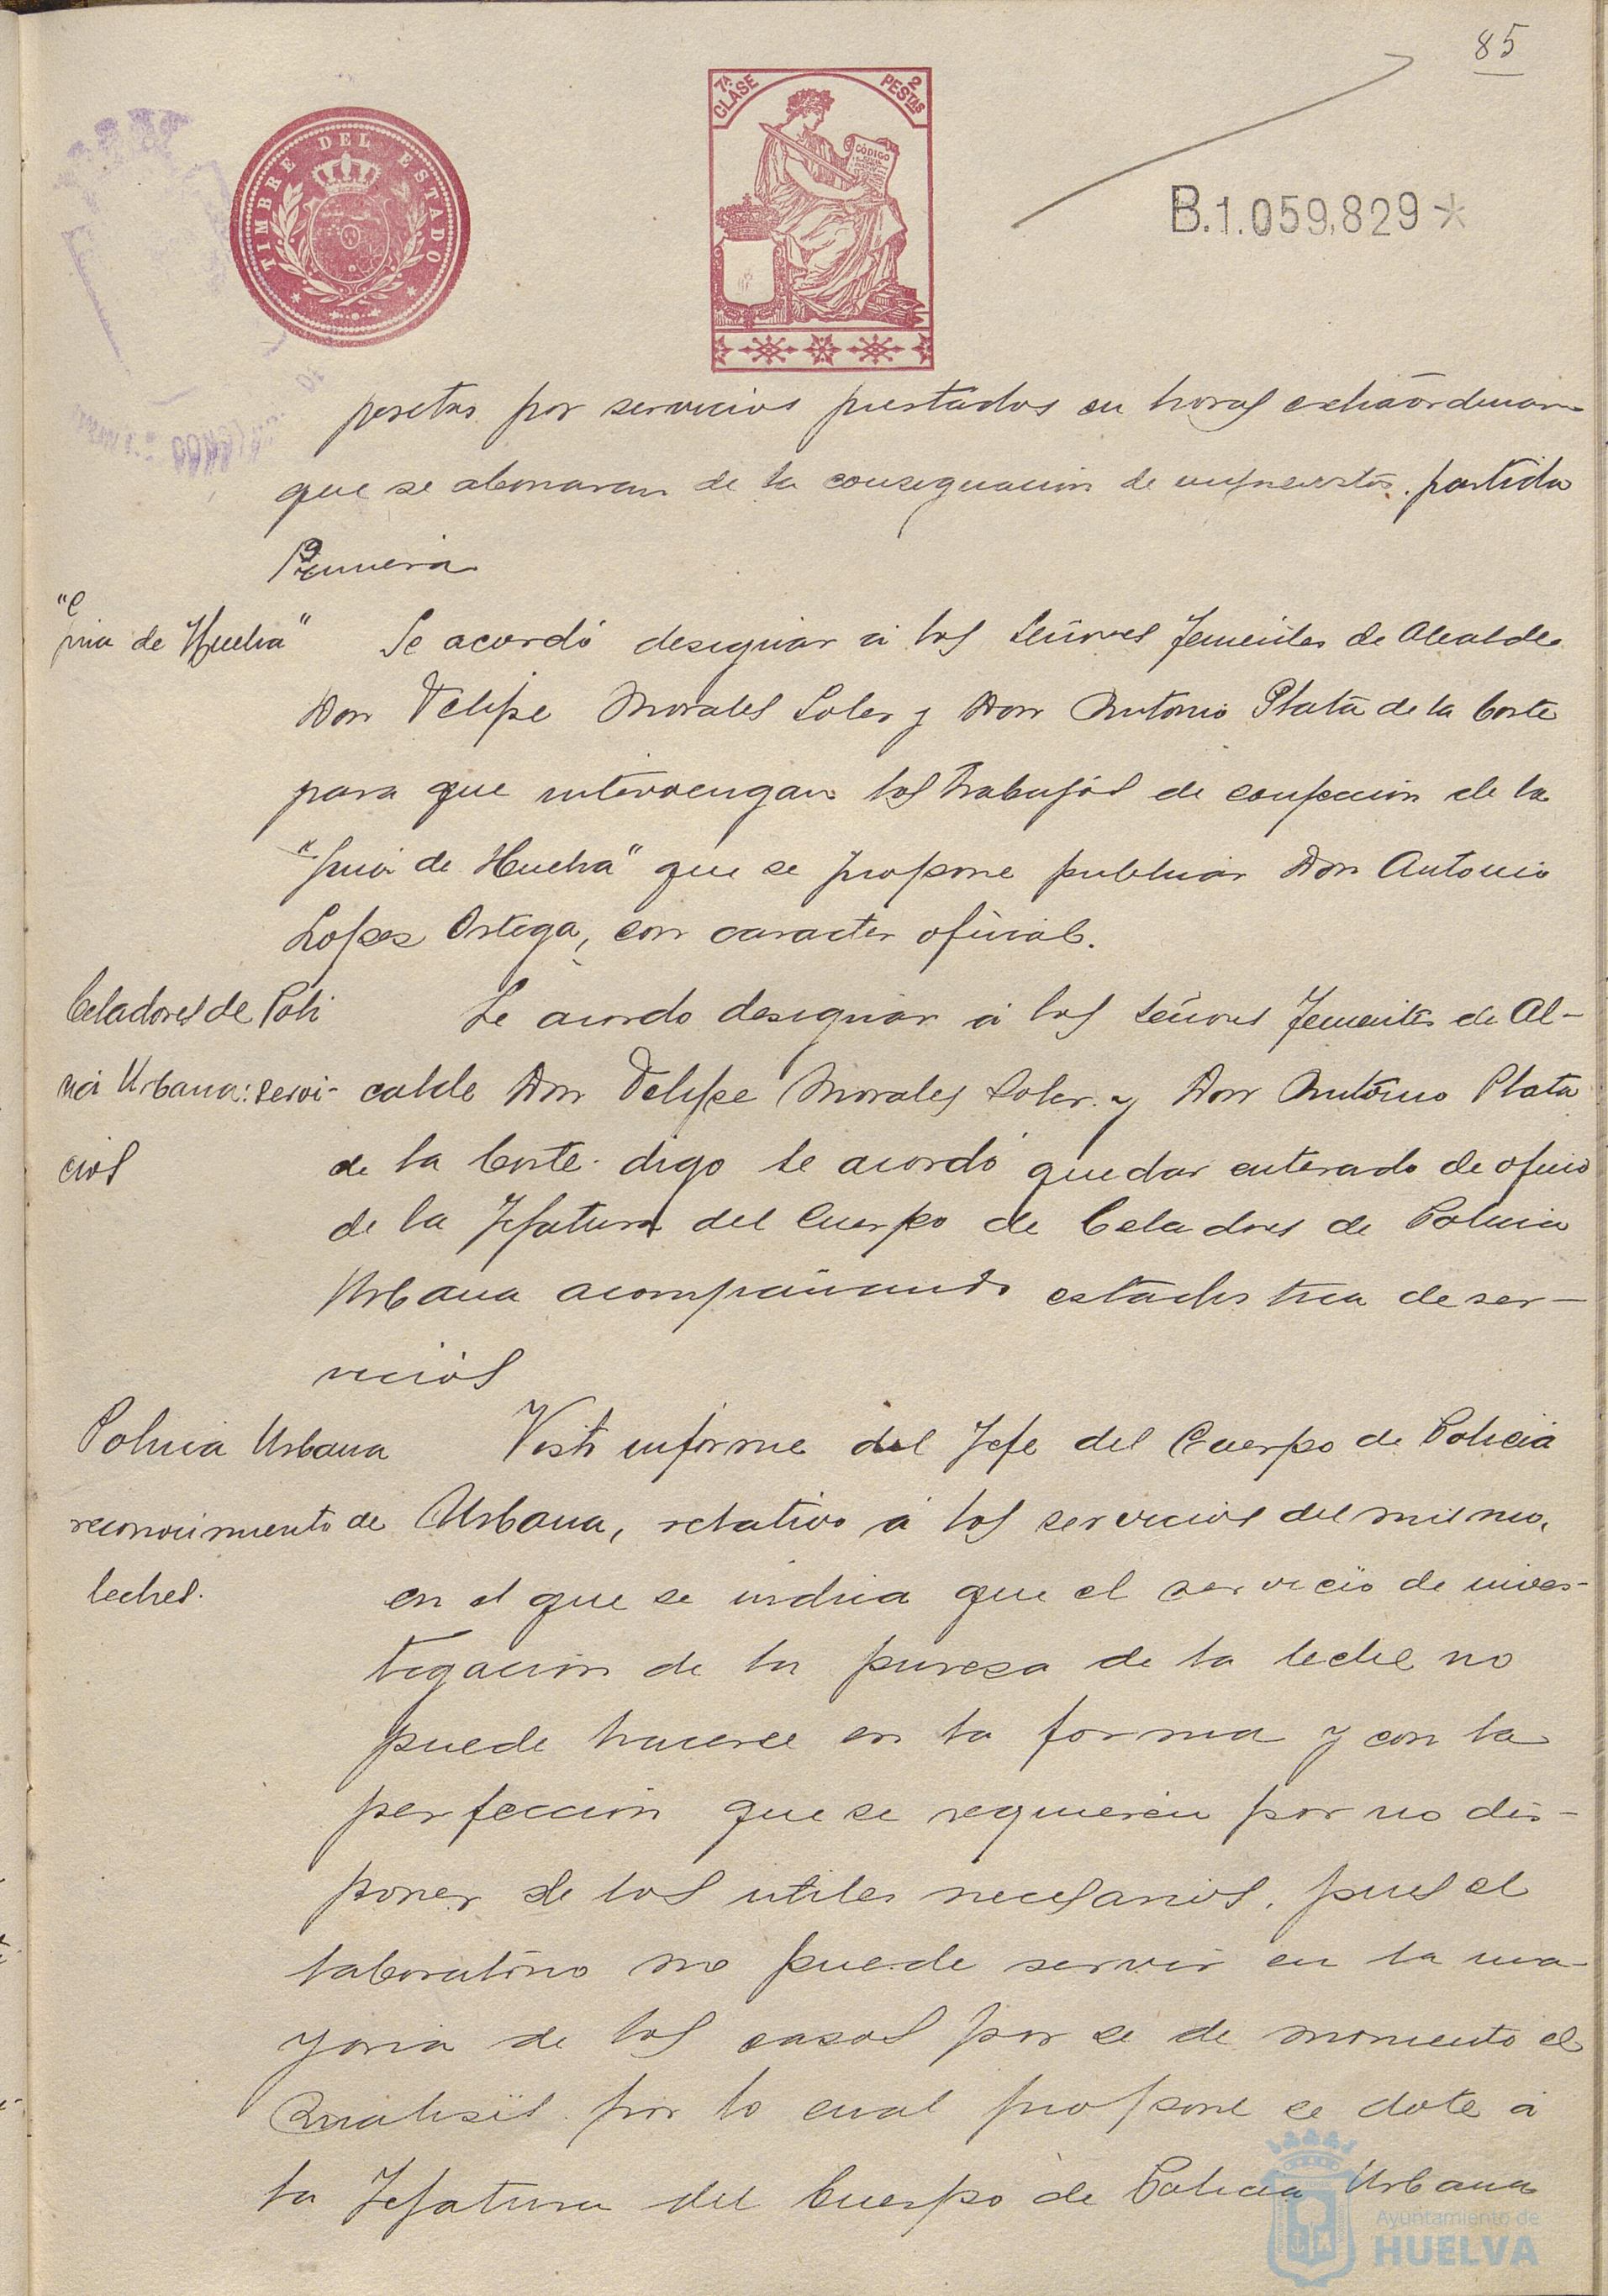 85
7ª CLASE
2 PESTAS
CÓDIGO
TIMBRE DEL ESTADO
B.1.059,829*
pesetas por servicios prestados en horas extraordinarias
que se abonaran de la consignacion de imprevistos. partida
Primera
guia de Huelva"
Se acordó designar á los Señores Tenientes de Alcalde
Don Felipe Morales Soler y Don Antonio Plata de la Corte
para que intervengan los trabajos de confeccion de la
"guia de Huelva" que se propone publicar Don Antonio
Lopez Ortega, con caracter oficial.
Celadores de Poli
cia Urbana: servi-
cios
Se acordo designar á los Señores Tenientes de Al-
calde Don Felipe Morales Soler y Don Antonio Plata
de la Corte. digo Se acordó quedar enterado de oficio
de la Jefatura del Cuerpo de Celadores de Policia
Urbana acompañando estadistica de ser-
vicios
Policia Urbana
reconocimiento de
leches.
Visto informe del Jefe del Cuerpo de Policia
Urbana, relativo á los servicios del mismo,
en el que se indica que el servicio de inves-
tigacion de la pureza de la leche no
puede hacerse en la forma y con la
perfeccion que se requieren por no dis-
poner de los utiles necesarios, pues el
laboratorio no puede servir en la ma-
yoria de los casos por se de momento el
analisis por lo cual propone se dote á
la Jefatura del Cuerpo de Policia Urbana
Ayuntamiento de
HUELVA